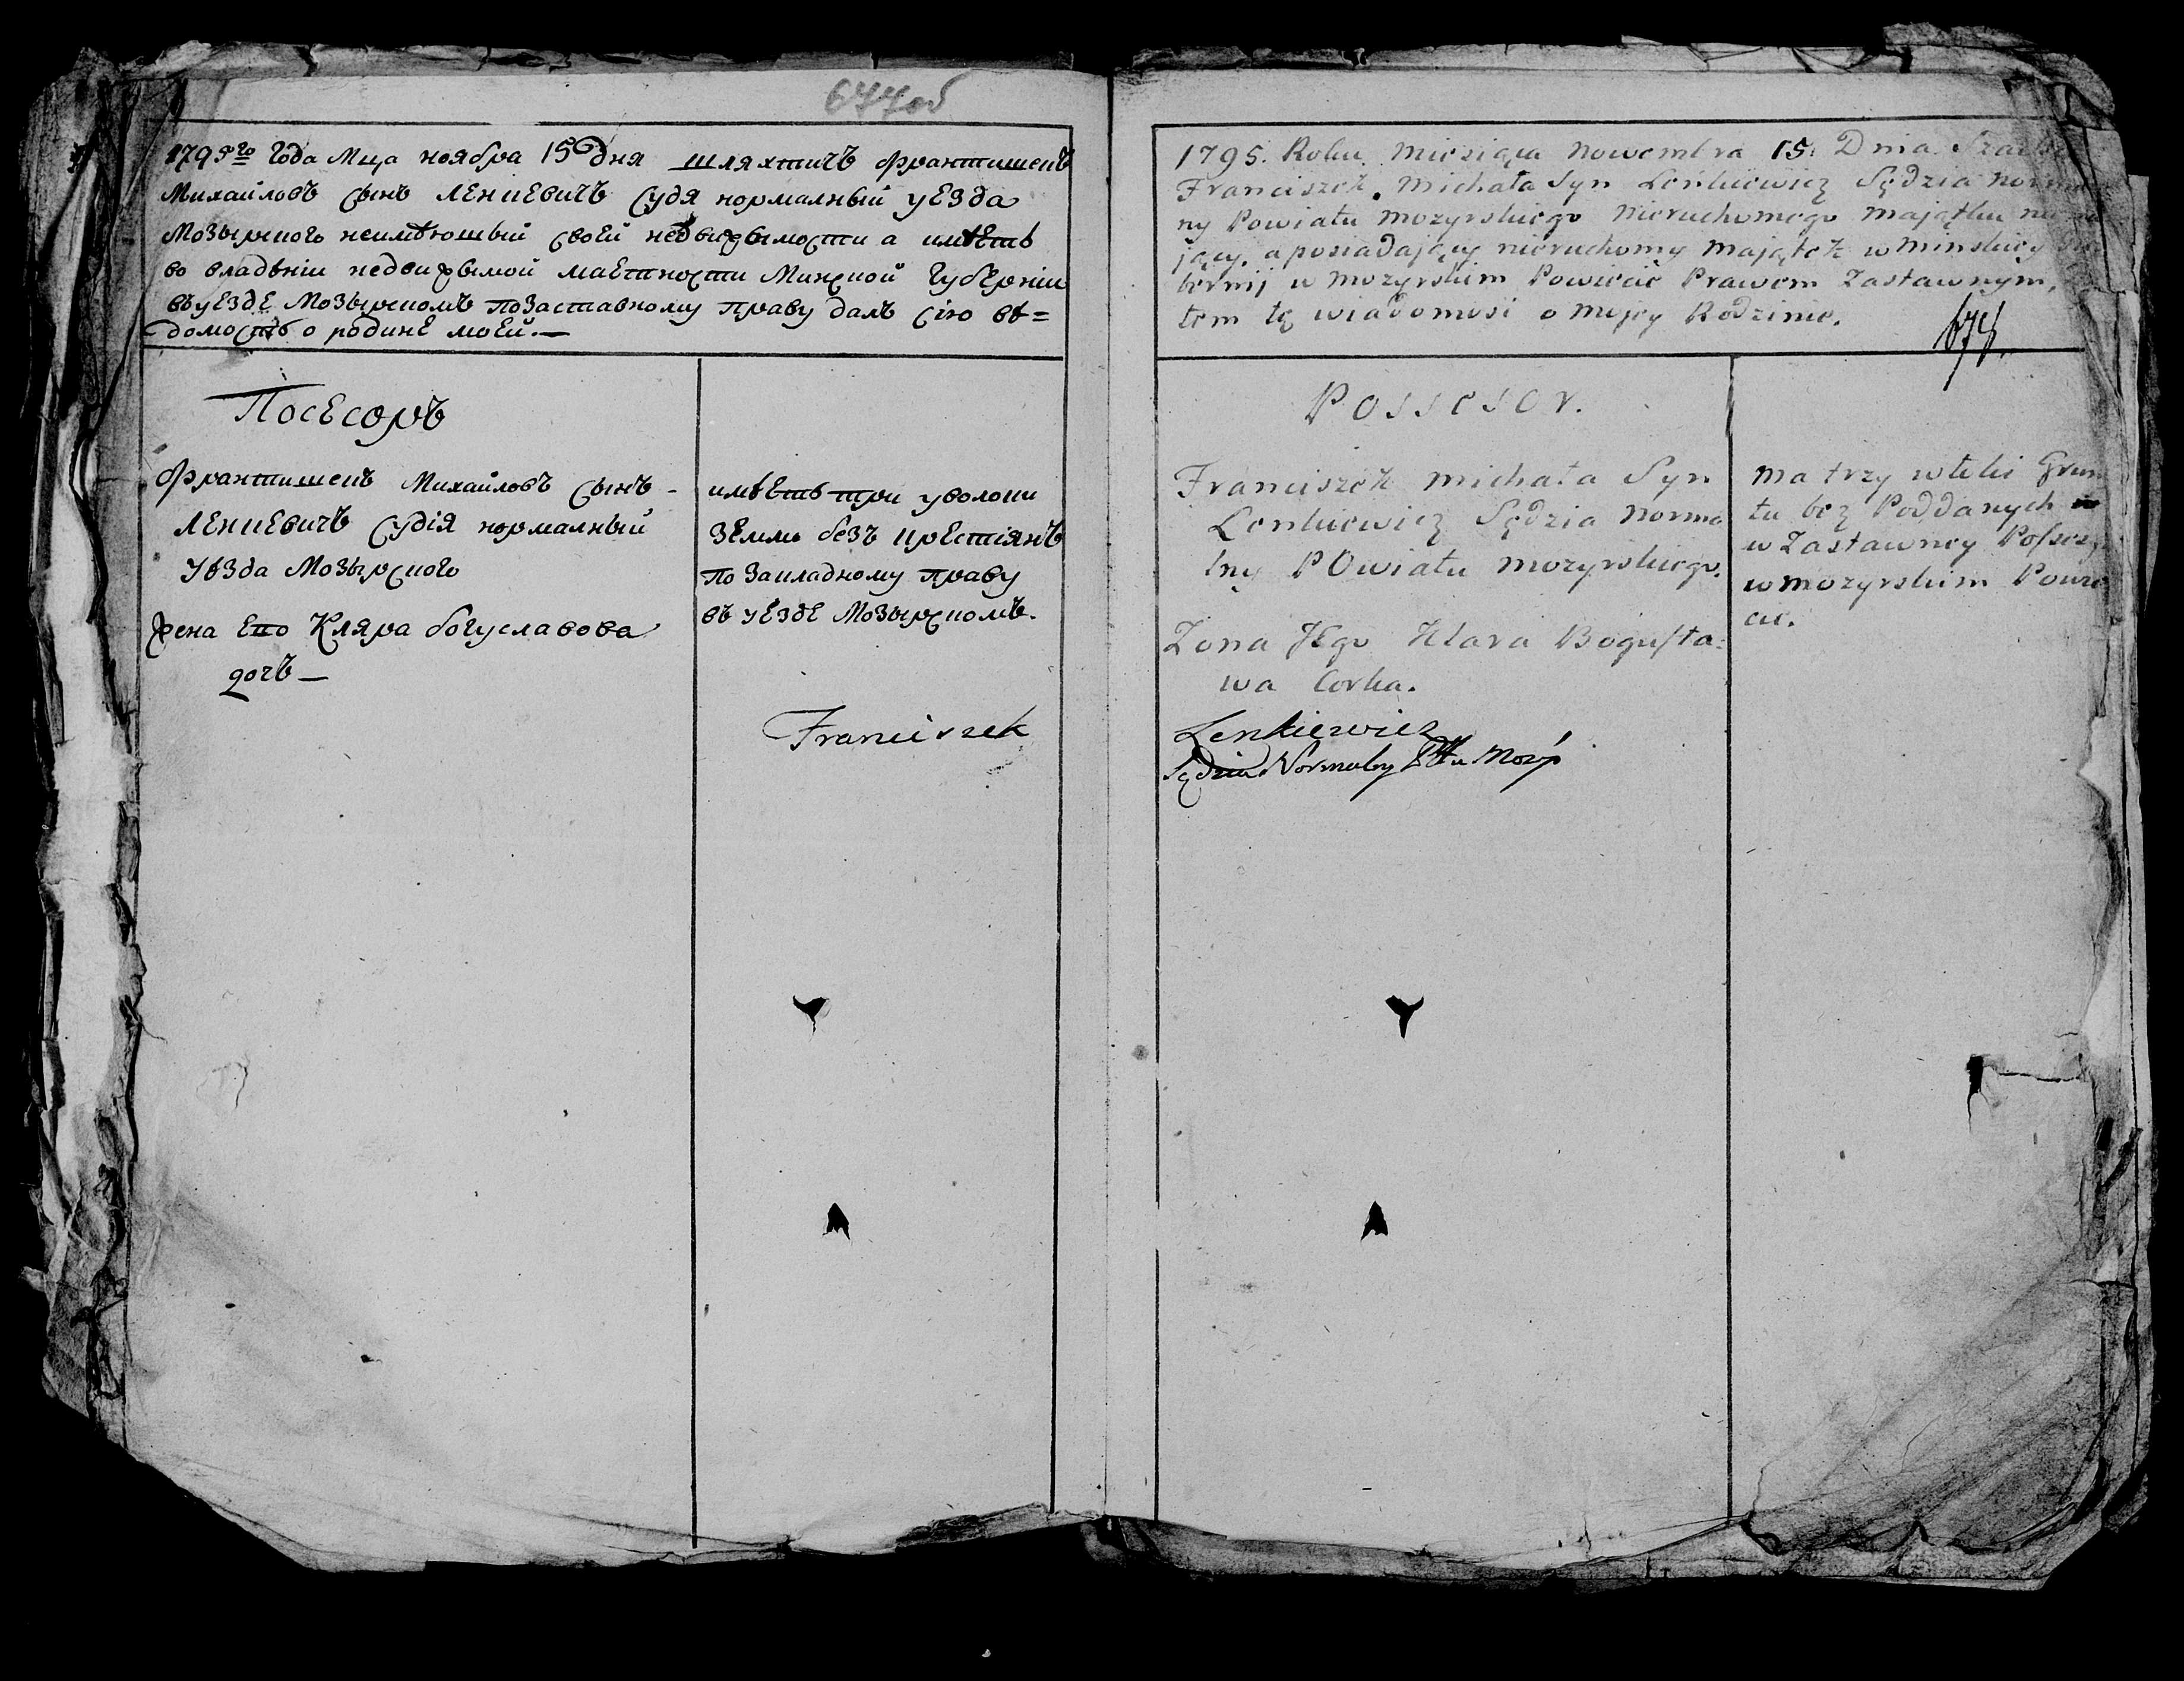 677об
1795го года Мца ноября 15 дня шляхтичъ Франтишекъ
Михайловъ сынъ Ленкевичъ судя нормалный уезда
Мозырского неимѣюшьй своей недвижымости а имѣетъ
во владѣніи недвижымой маетности Минской Губерніи
въ уезде Мозырскомъ по заставному праву далъ сію вѣ=
домость о родине моей.—
Посесоръ
Франтишекъ Михайловъ сынъ -
Ленкевичъ судія нормалный
Уѣзда Мозырского
жена его Кляра богуславова
дочъ —
имѣетъ три уволоки
земли безъ крестіянъ
по закладному праву
въ уезде Мозырскомъ.
Franciszek
1795. Roku. Miesiąca Nowembra 15. Dnia
Franciszek. Michała Syn Leńkiewicz Sędzia
ny Powiatu Mozyrskiego Nieruchomego Majątku
jący. a posiadający nieruchomy Majątek w Minskiey
bernij w Mozyrskim Powiecie Prawem Zastawnym,
tem tę wiadomosć o Mojey Rodzinie.
674.
Possesor.
Franciszek Michała Syn
Lenkiewicz Sędzia Norma
lny Powiatu Mozyrskiego.
Zona Jego Klara Bogusła=
wa Corka.
Lenkiewicz
Sędzia Normalny Pttu Mozyr
Ma trzy włoki Grun
tu bez Poddanych
w Zastawney
w Mozyrskim Powie
cie.